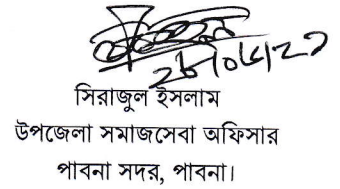 সিরাজুল ইসলাম
উপজেলা সমাজসেবা অফিসার
পাবনা সদর, পাবনা।